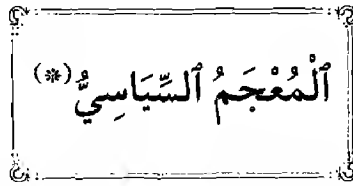 ٱلْمُعْجَمُ ٱلسِّيَاسِيُّ (*)